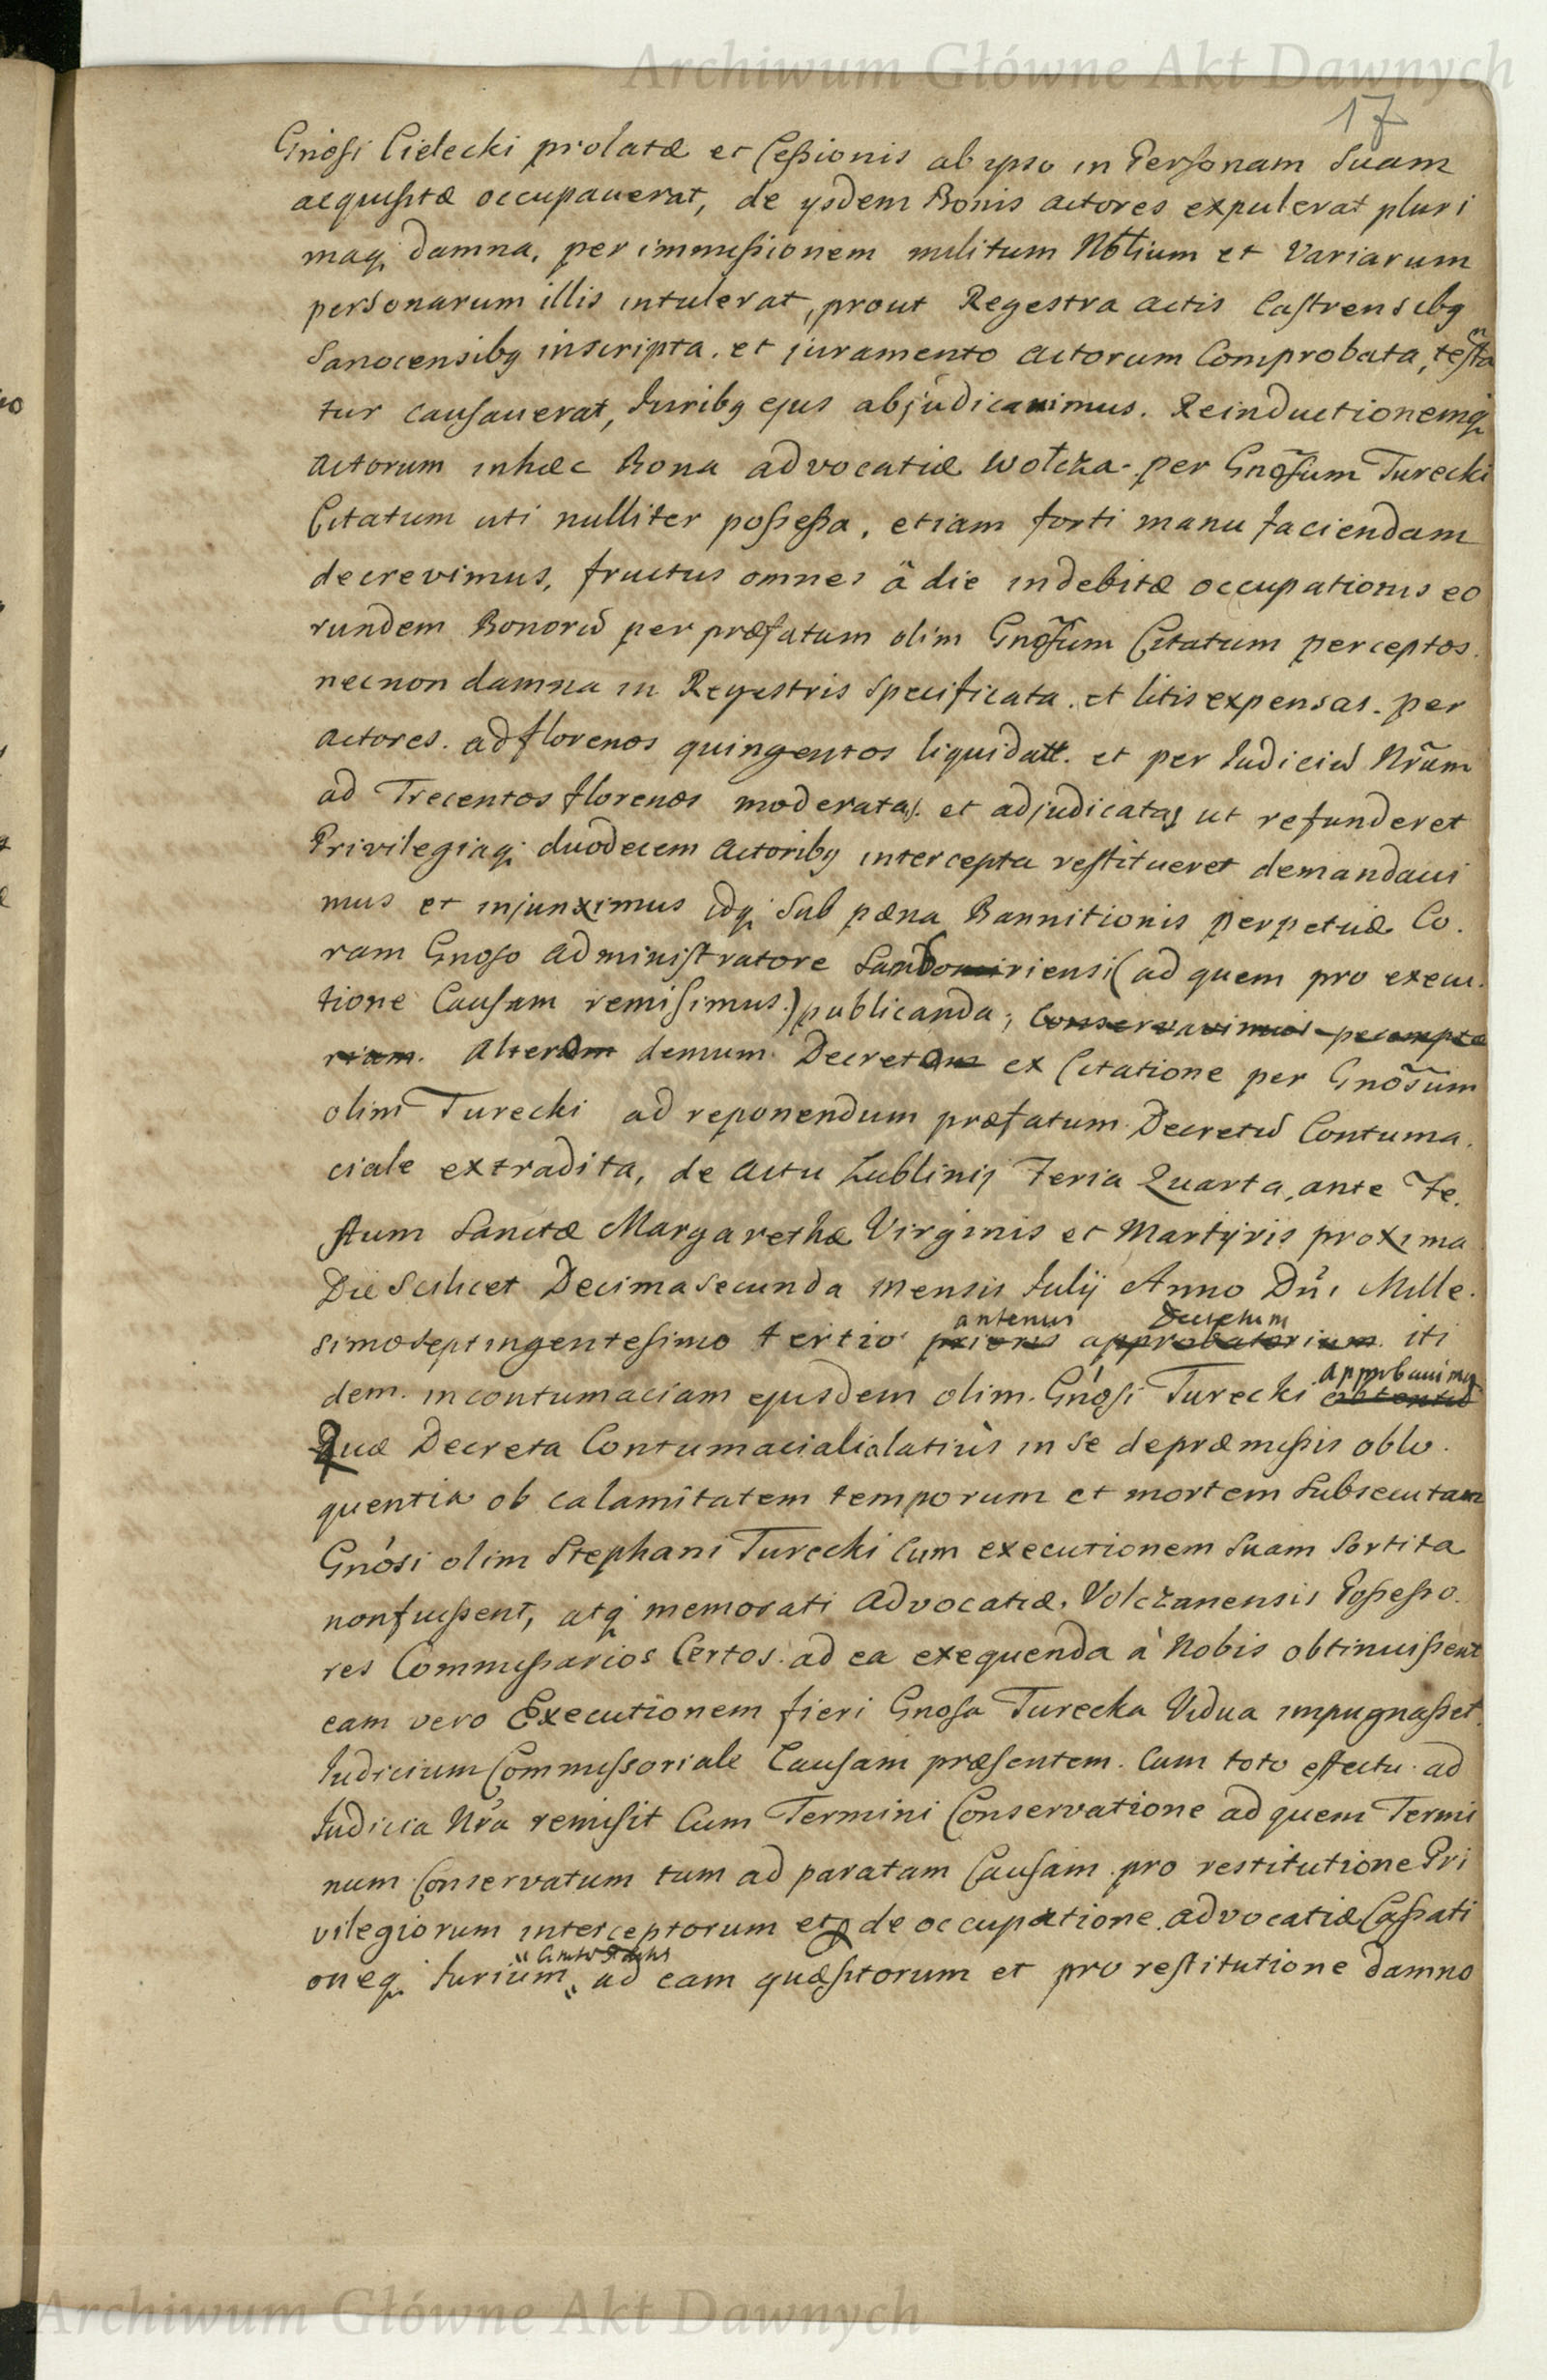 Archiwum Główne Akt Dawnych
17
Gnosi Cielecki prolatæ et Cessionis ab ipso in Personam Suam
acquisitæ occupaverat, de ysdem Bonis actores expulerat pluri
maq; damna, per immissionem militum Nbtium et Variarum
personarum illis intulerat, prout Regestra actis Castrensibq
Sanocensibq inscripta. et juramento actorum Comprobata, testa
tur causauerat, Juribq ejus abjudicavimus. Reinductionemq;
actorum in hæc Bona advocatiæ Wołcza per Gnosum Turecki
Citatum uti nulliter possessa, etiam forti manu faciendam
decrevimus, fructus omnes à die indebitæ occupationis eo
rundem Bonorũ per præfatum olim Gnosum Citatum perceptos.
necnon damna in Regestris Specificata. et litis expensas. per
actores. ad florenos quingentos liquidatt. et per Judiciũ Nrãm
ad Trecentos florenos moderatas. et adjudicatas ut refunderet
Privilegiaq; duodecem Actoribq intercepta restitueret demandaui
mus et injunximus idq; Sub pæna Bannitionis perpetuæ Co.
ram Gnoso administratore Sandomiriensi (ad quem pro execu.
tione Causam remisimus.) publicanda, Conservavimus perempto
riam. Alteram demum Decretum ex Citatione per Gnosum
olim Turecki ad reponendum præfatum Decretũ Contuma.
ciale extradita, de actu Lublinij Feria Quarta, ante Fe.
stum Sanctæ Margarethæ Virginis et Martyris proxima
Die Scilicet Decima Secunda mensis Julij Anno Dni Mille.
antenus Decretum
simo Septingentesimo tertio prioris approbatorium. iti
approbauimq
dem. in contumaciam ejusdem olim. Gnosi Turecki obtentũ
Quæ Decreta Contumacialia latiùs in Se de præmissis oblo.
quentia ob calamitatem temporum et mortem Subsecutam
Gnosi olim Stephani Turecki Cum executionem Suam Sortita
non fuissent, atq; memorati Advocatiæ. Volczanensis Possesso.
res Commissarios Certos. ad ea exequenda à Nobis obtinuissent
eam vero Executionem fieri Gnosa Turecka Vidua impugnasset.
Judicium Commissoriale Causam præsentem. Cum toto effectu ad
Judicia Nra remisit Cum Termini Conservatione ad quem Termi
num Conservatum tum ad paratam Causam pro restitutione Pri
vilegiorum interceptorum etq de occupatione advocatiæ Cassati
oneq; Jurium ad eam quæsitorum et pro restitutione damno
Archiwum Główne Akt Dawnych